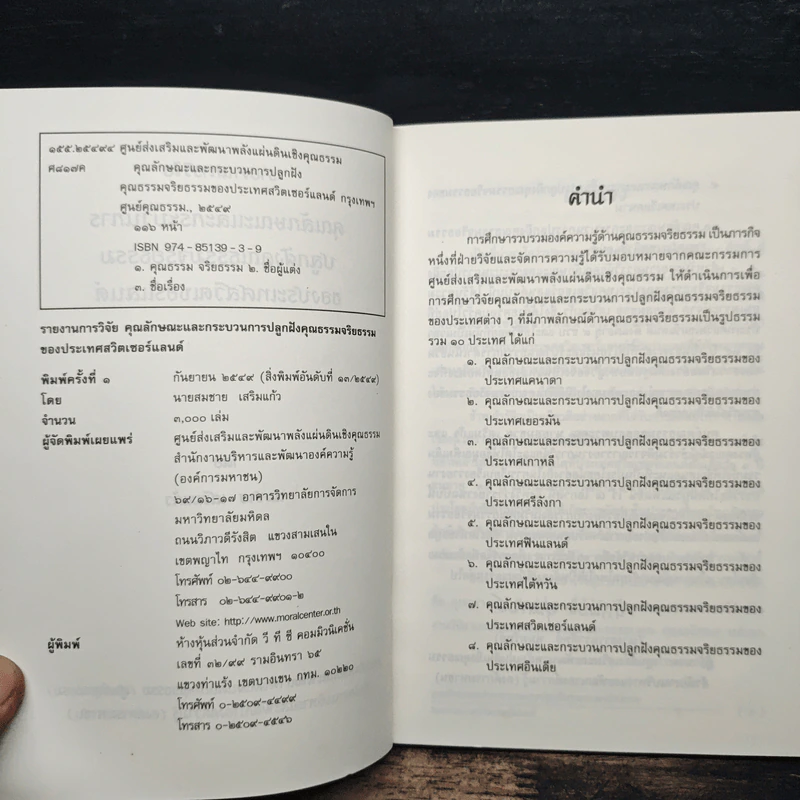 ๑๕๕.๒๕๔๙๔ ศูนย์ส่งเสริมและพัฒนาพลังแผ่นดินเชิงคุณธรรม
ศ๘๑๗ค คุณลักษณะและกระบวนการปลูกฝัง
คุณธรรมจริยธรรมของประเทศสวิตเซอร์แลนด์ กรุงเทพฯ
ศูนย์คุณธรรม., ๒๕๔๙
๑๑๖ หน้า
ISBN 974-85139-3-9
๑. คุณธรรม จริยธรรม ๒. ชื่อผู้แต่ง
๓. ชื่อเรื่อง
รายงานการวิจัย คุณลักษณะและกระบวนการปลูกฝังคุณธรรมจริยธรรม
ของประเทศสวิตเซอร์แลนด์
พิมพ์ครั้งที่ ๑ กันยายน ๒๕๔๙ (สิ่งพิมพ์อันดับที่ ๑๓/๒๕๔๙)
โดย นายสมชาย เสริมแก้ว
จำนวน ๓,๐๐๐ เล่ม
ผู้จัดพิมพ์เผยแพร่ ศูนย์ส่งเสริมและพัฒนาพลังแผ่นดินเชิงคุณธรรม
สำนักงานบริหารและพัฒนาองค์ความรู้
(องค์การมหาชน)
๖๙/๑๖-๑๗ อาคารวิทยาลัยการจัดการ
มหาวิทยาลัยมหิดล
ถนนวิภาวดีรังสิต แขวงสามเสนใน
เขตพญาไท กรุงเทพฯ ๑๐๔๐๐
โทรศัพท์ ๐๒-๖๔๔-๙๙๐๐
โทรสาร ๐๒-๖๔๔-๙๙๐๑-๒
Web site: http://www.moralcenter.or.th
ผู้พิมพ์ ห้างหุ้นส่วนจำกัด วี ที ซี คอมมิวนิเคชั่น
เลขที่ ๓๒/๙๙ รามอินทรา ๖๕
แขวงท่าแร้ง เขตบางเขน กทม. ๑๐๒๒๐
โทรศัพท์ ๐-๒๕๐๙-๔๔๙๙
โทรสาร ๐-๒๕๐๙-๔๕๔๖
คำนำ
การศึกษารวบรวมองค์ความรู้ด้านคุณธรรมจริยธรรม เป็นภารกิจ
หนึ่งที่ฝ่ายวิจัยและจัดการความรู้ได้รับมอบหมายจากคณะกรรมการ
ศูนย์ส่งเสริมและพัฒนาพลังแผ่นดินเชิงคุณธรรม ให้ดำเนินการเพื่อ
การศึกษาวิจัยคุณลักษณะและกระบวนการปลูกฝังคุณธรรมจริยธรรม
ของประเทศต่าง ๆ ที่มีภาพลักษณ์ด้านคุณธรรมจริยธรรมเป็นรูปธรรม
รวม ๑๐ ประเทศ ได้แก่
๑. คุณลักษณะและกระบวนการปลูกฝังคุณธรรมจริยธรรมของ
ประเทศแคนาดา
๒. คุณลักษณะและกระบวนการปลูกฝังคุณธรรมจริยธรรมของ
ประเทศเยอรมัน
๓. คุณลักษณะและกระบวนการปลูกฝังคุณธรรมจริยธรรมของ
ประเทศเกาหลี
๔. คุณลักษณะและกระบวนการปลูกฝังคุณธรรมจริยธรรมของ
ประเทศศรีลังกา
๕. คุณลักษณะและกระบวนการปลูกฝังคุณธรรมจริยธรรมของ
ประเทศฟินแลนด์
๖. คุณลักษณะและกระบวนการปลูกฝังคุณธรรมจริยธรรมของ
ประเทศไต้หวัน
๗. คุณลักษณะและกระบวนการปลูกฝังคุณธรรมจริยธรรมของ
ประเทศสวิตเซอร์แลนด์
๘. คุณลักษณะและกระบวนการปลูกฝังคุณธรรมจริยธรรมของ
ประเทศอินเดีย